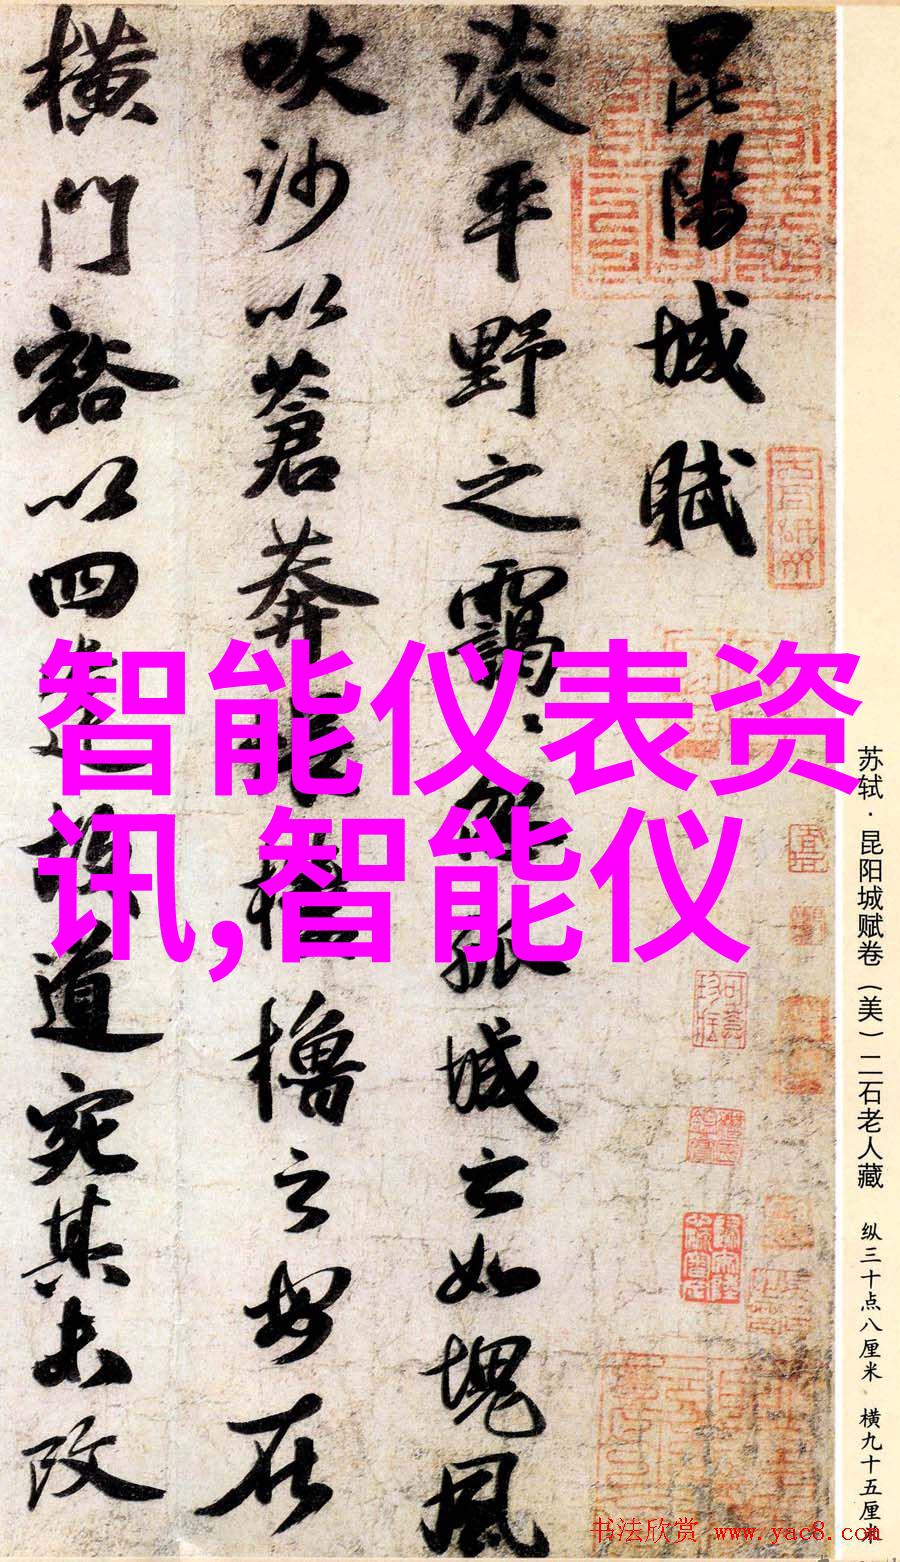 昆陽城賦
淡平野之靄〻忽孤城之如塊風
吹沙以蒼莽悵樓櫓之安在
橫門豁以四達故道宛其未改
智能仪表资
讯,智能仪
苏轼·昆阳城赋卷（美）二石老人藏 纵三十点八厘米 横九十五厘米
书法欣赏 www.yac8.com